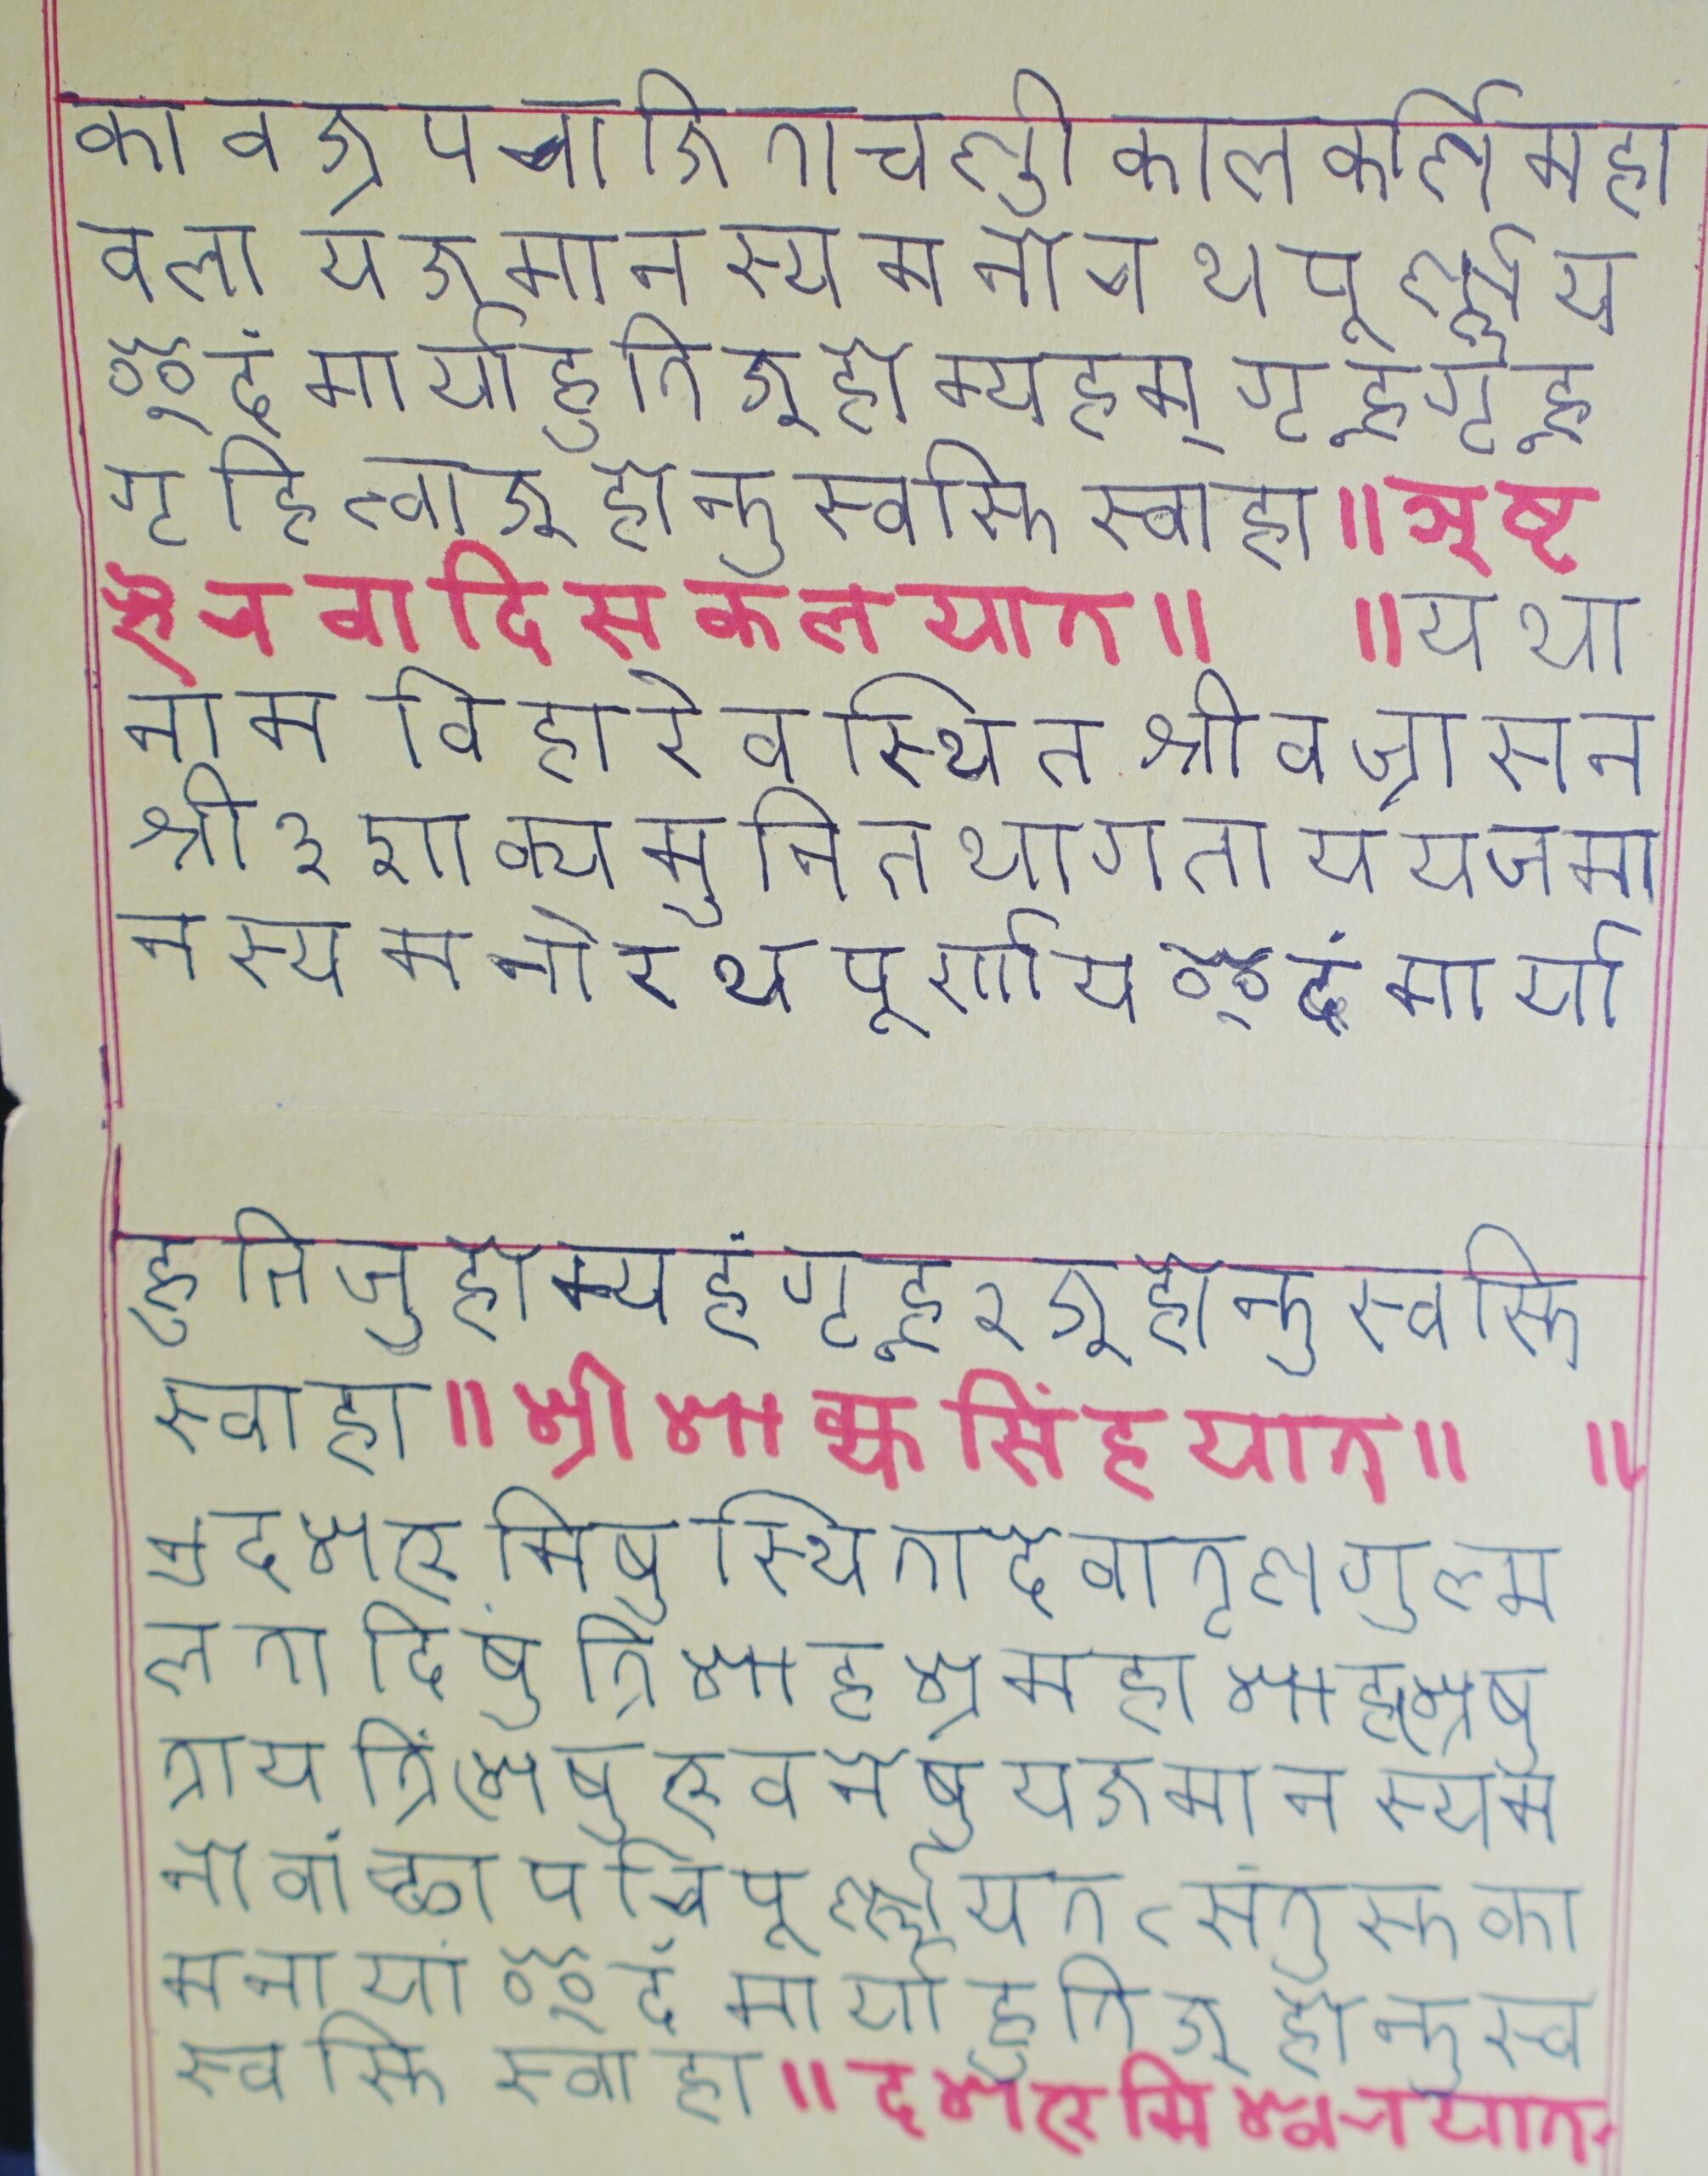 का वज्रपञ्जरि ता चण्डी कालकर्णि महा
वला यजमानस्य मनोरथ पूर्ण्णाय
इदं मार्याहुति जुहोम्यहम् गृह्ण गृह्ण
गृहित्वा जुहोतु स्वस्ति स्वाहा ॥ अष्ट
भैरवादि सकल यात ॥ ॥ यथा
नाम विहारे व स्थित श्री वज्रासन
श्री ३ शाक्यमुनि तथागताय यजमा
नस्य मनोरथ पूर्णाय इदं मार्या
हुति जुहोम्यहं गृह्ण २ जुहोतु स्वस्ति
स्वाहा ॥ श्री शाक्यसिंह यात ॥ ॥
ये दशभुमिषु स्थिता देवा तृण गुल्म
लतादिषु त्रिशाहश्रमहाशाहश्रेषु
त्रायत्रिंशेषु भुवनेषु यजमानस्य म
नोवांछा परिपूर्ण्णाय तत् संतुस्त का
मनायां इदं मार्याहुति जुहोतु स्व
स्वस्ति स्वाहा ॥ दशभुमिश्वर यात